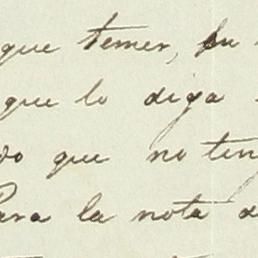 que temer, su
que lo diga
do que no teng
Para la nota d